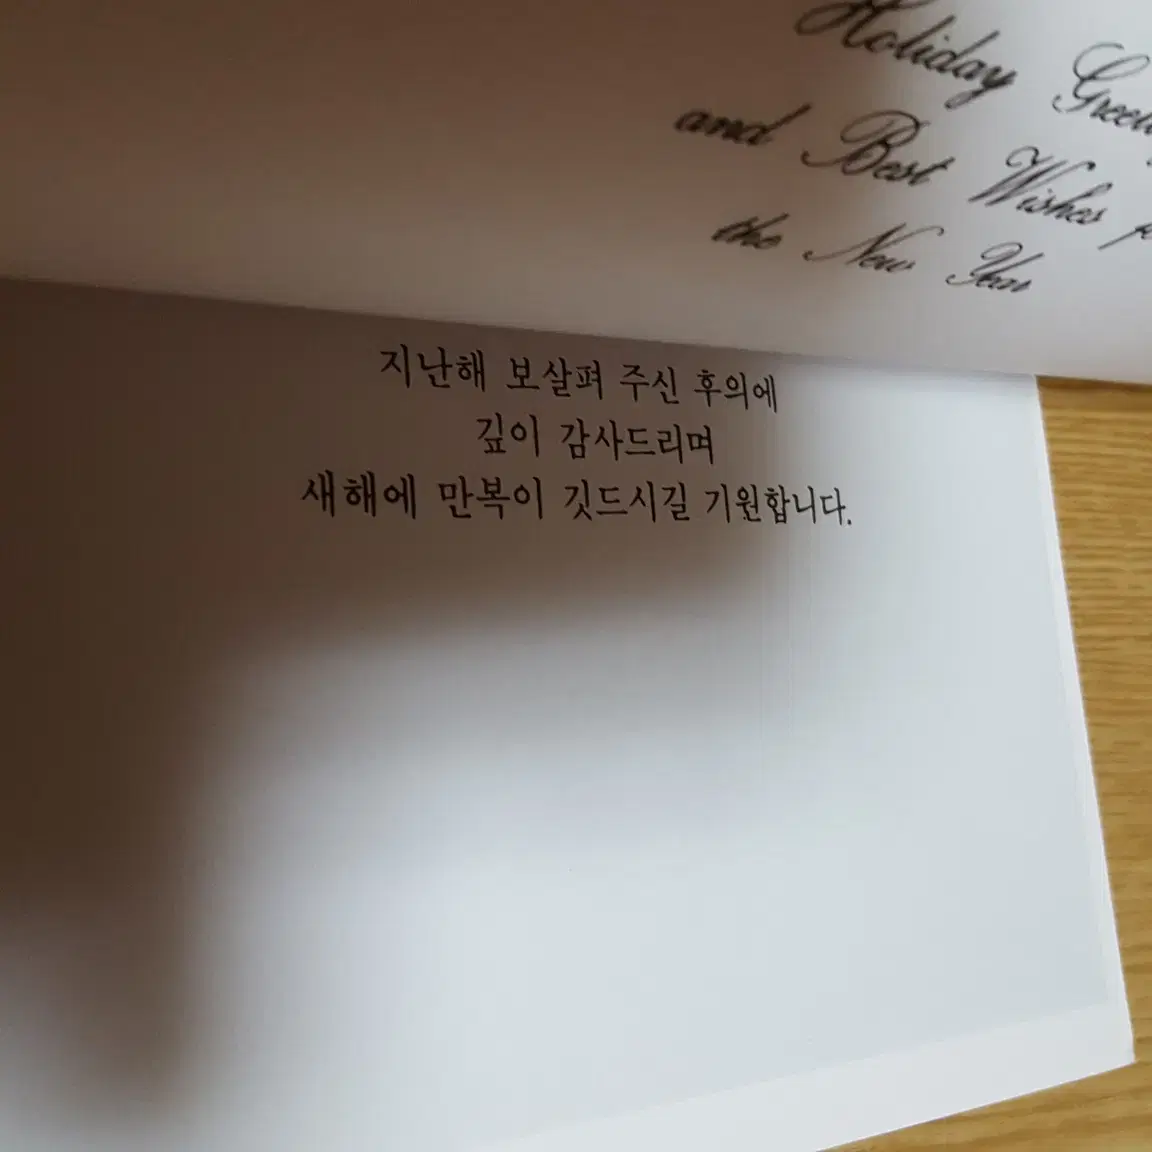 Holiday
and Best Wishes
the New Year
지난해 보살펴 주신 후의에
깊이 감사드리며
새해에 만복이 깃드시길 기원합니다.